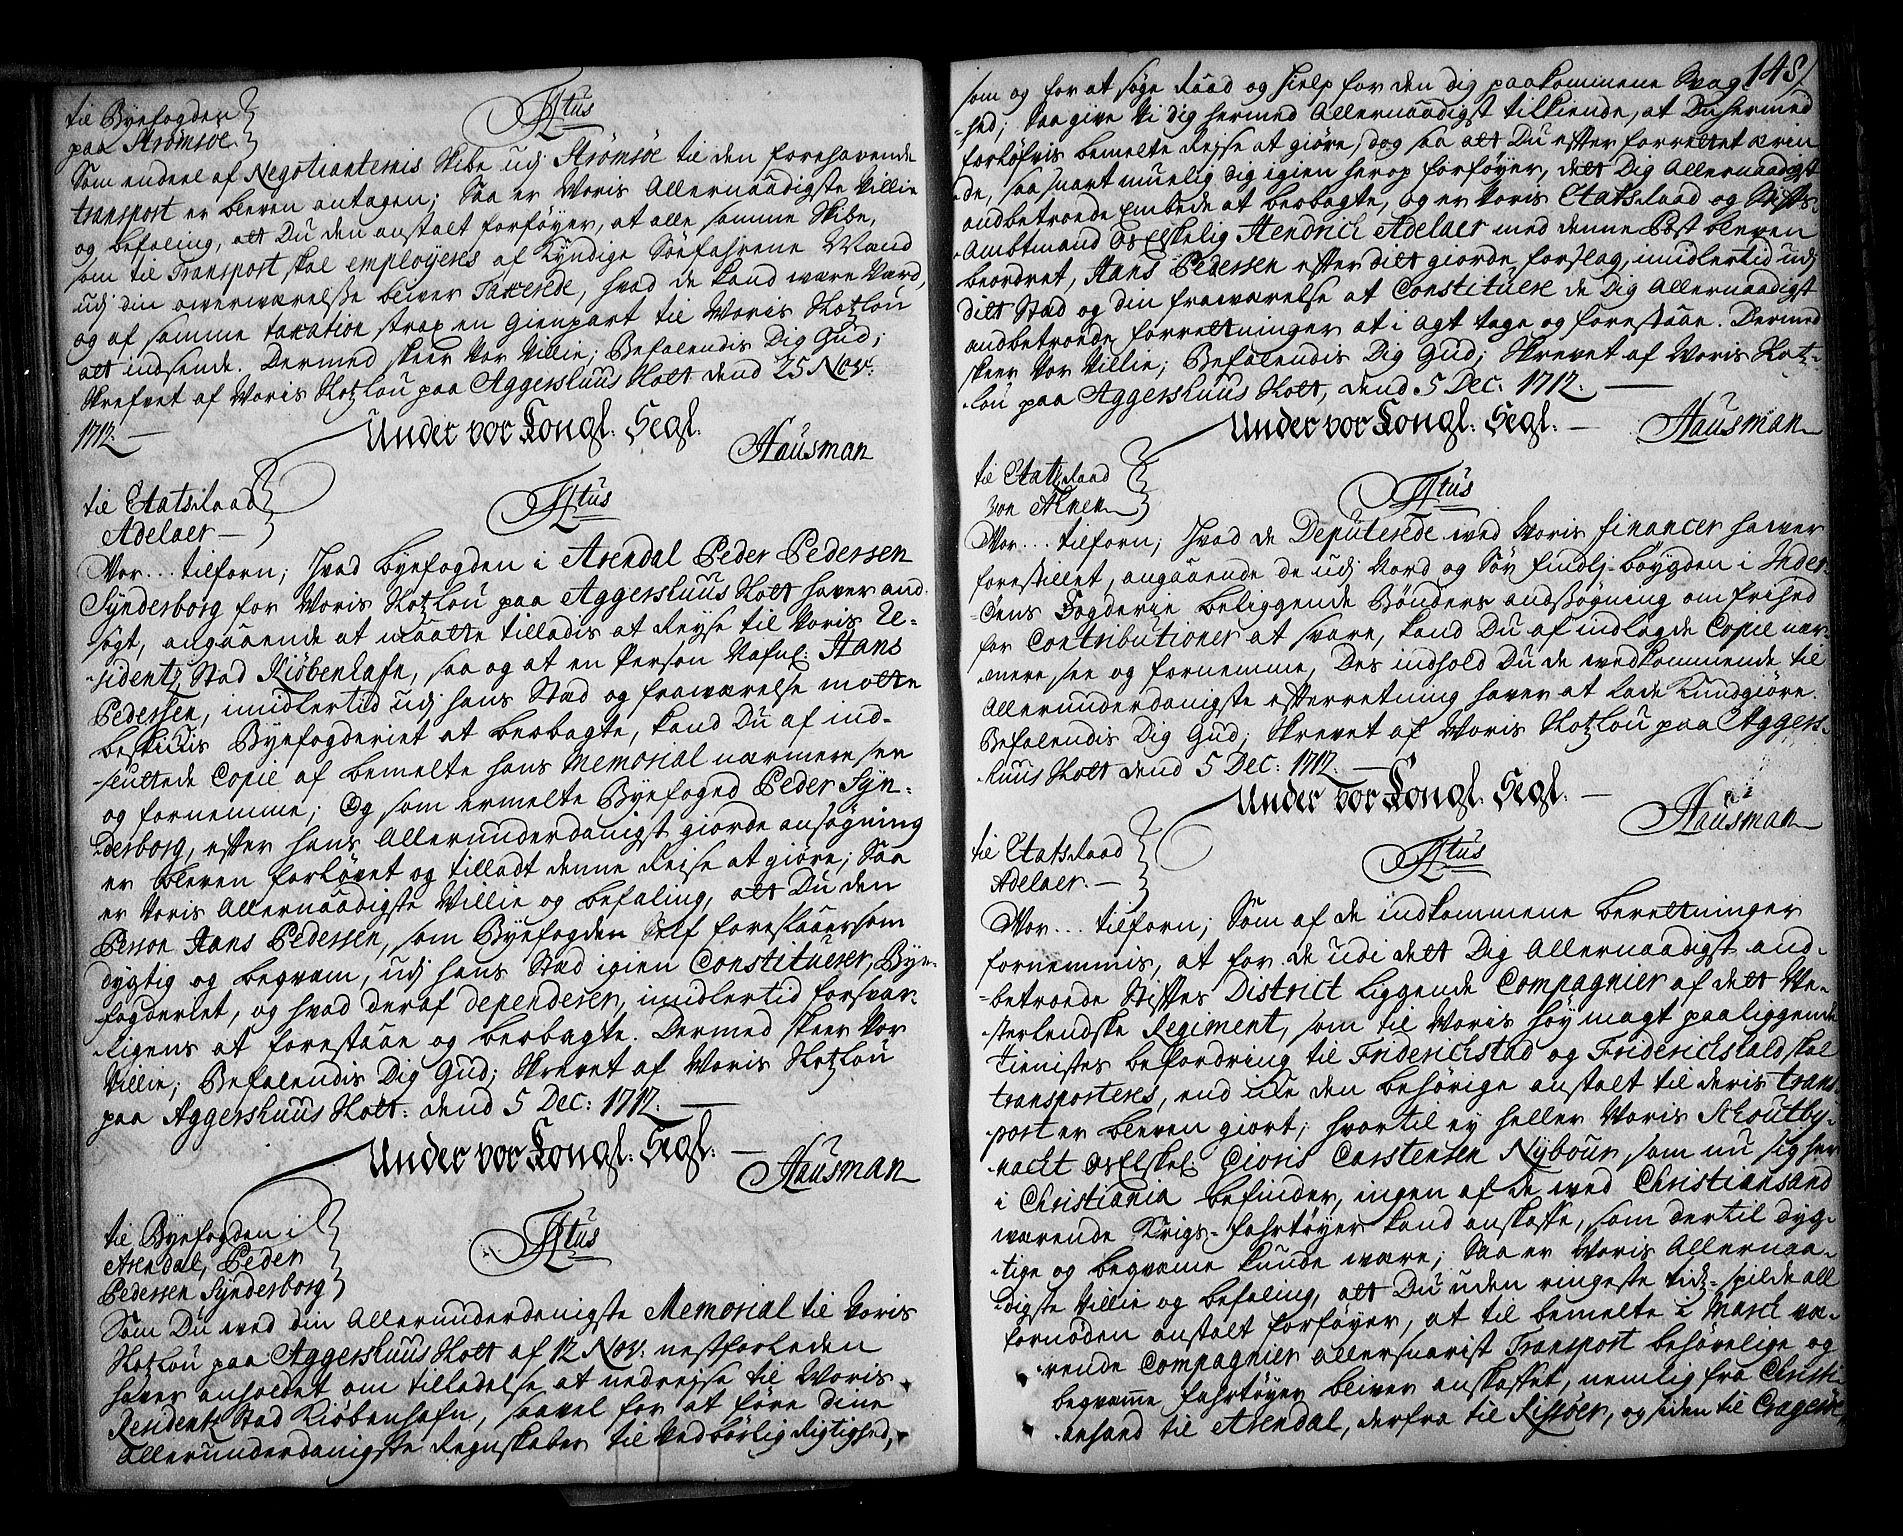 til Byefogden
paa Strømsøe.
Ttus
Som endeel af Negotianternis Skibe udj Strømsøe til den forehavende
transport er bleven antagen; Saa er Voris Allernaadigste Villie
og befaling, att Du den anstalt forføyer, at alle samme Skibe,
som til Transport skal employeres af Kyndige Søefahrene Mænd
udj din overværelse bliver Taxerede, hvad de kand være Værd,
og af samme taxation strax en Gienpart til Voris Slotzlou
att indsende. Dermed skeer Vor Villie; Befalendis Dig Gud;
Skrefvet af Voris Slotzlou paa Aggershuus Slott dend 25 Nov:
1712. —
Under vor Kongl. Segl.
Hausman
til Etatsraad
Adelaer —
Ttus
Vor... tilforn; Hvad byefogden i Arendal Peder Pedersen
Synderborg for Voris Slotzlou paa Aggershuus Slott haver and-
søgt, angaaende at maatte tilladis at Reyse til Voris Re-
sidentz Stad Kiøbenhafn, saa og at en Person Nafnl: Hans
Pedersen, imidlertid udj hans Stæd og fraværelse motte
beskikis Byefogderiet at beobagte, kand Du af ind-
-sluttede Copie af bemelte hans Memorial nærmere see
og fornemme; Og som ermelte Byefoged Peder Syn-
derborg, efter hans Allerunderdanigst giorde ansøgning
er bleven forløvet og tilladt denne Reise at giøre; Saa
er Voris Allernaadigste Villie og befaling, att Du den
Person Hans Pedersen, som Byefogden Self foreslaaer som
dygtig og beqvem, udj hans Stæd igien Constituerer, Bye-
fogderiet, og hvad deraf dependerer, imidlertid forsvar-
ligens at forestaae og beobagte. Dermed skeer Vor
Villie; Befalendis Dig Gud; Skrevet af Voris Slotzlou
paa Aggershuus Slott: dend 5 Dec: 1712. —
Under vor Kongl. Segl. —
Hausman
til Byefogden i
Arendal, Peder
Pedersen Synderborg
Ttus
Som Du med din Allerunderdanigste Memorial til Voris
Slotzlou paa Aggershuus Slott af 12 Nov. nestforleden
haver anholdet om tilladelse at nedrejse til Voris
Residentz Stad Kiøbenhafn, saavel for at føre dine
Allerunderdanigste Regnskaber til Vedbørlig Rigtighed,
148
som og for at søge Raad og Hielp for den dig paakommene Svag-
-hed; Saa give Vi dig hermed Allernaadigst tilkiende, at Du hermed
forløfvis bemelte Rejse at giøre, dog saa att Du efter forrettet ærin-
de, saa snart muelig dig igien herop forføyer, dett Dig Allernaadigst
andbetroede Embede at beobagte, og er Voris Etatsraad og Stifts-
Ambtmand Os Elskelig Hendrich Adelaer med denne Post bleven
beordret, Hans Pedersen efter ditt giorde forslag, imidlertid udj
ditt Stæd og din fraværelse at Constituere de Dig Allernaadigst
andbetroede forretninger at i agt tage og forestaae. Dermed
skeer Vor Villie; Befalendis Dig Gud; Skrevet af Voris Slotz-
lou paa Aggershuus Slott, dend 5 Dec: 1712. —
Under vor Kongl. Segl. —
Hausman
til Etatsraad
von Ahnen
Ttus
Vor... tilforn; Hvad de Deputerede ved Voris financer haver
forestillet, angaaende de udj Nord og Søndlj. bøygden i Inder-
-øens Fogderie beliggende Bønders andsøgning om frihed
for Contributioner at svare, kand Du af indlagde Copie nær-
mere see og fornemme, Des indhold Du de vedkommende til
Allerunderdanigste efterretning haver at lade Kundgiøre.
Befalendis Dig Gud; Skrevet af Voris Slotzlou paa Aggers-
huus Slott dend 5 Dec: 1712. —
Under vor Kongl. Segl. —
Hausman
til Etatsraad
Adelaer. —
Ttus
Vor... tilforn; Som af de indkommene beretninger
fornemmis, at for de udi dett Dig Allernaadigst and-
-betroede Stiftes District liggende Compagnier af dett Ve-
sterlendske Regiment, som til Voris høy magt paaliggende
Tienistes befordring til Friderichstad og Friderichshald skal
transporteres, end ule den behørige anstalt til deris trans-
port er bleven giort; hvortil ey heller Voris Schoutby-
nacht Os Elskel. Gioris Carstensen Nybour som nu sig her
i Christiania befinder, ingen af de ved Christiansand
værende Krigs-fahrtøyer kand anskaffe, som dertil dyg-
-tige og beqvæme kunde være; Saa er Voris Allernaa-
digste Villie og befaling, att Du uden ringeste tids-spilde all
fornøden anstalt forføyer, at til bemelte i March væ-
rende Compagnier allersnarist Transport behøvelige og
beqvemme fahrtøyer bliver anskaffet, nemlig fra Christi-
ansand til Arendal, derfra til Risøer, og siden til Cragerøe